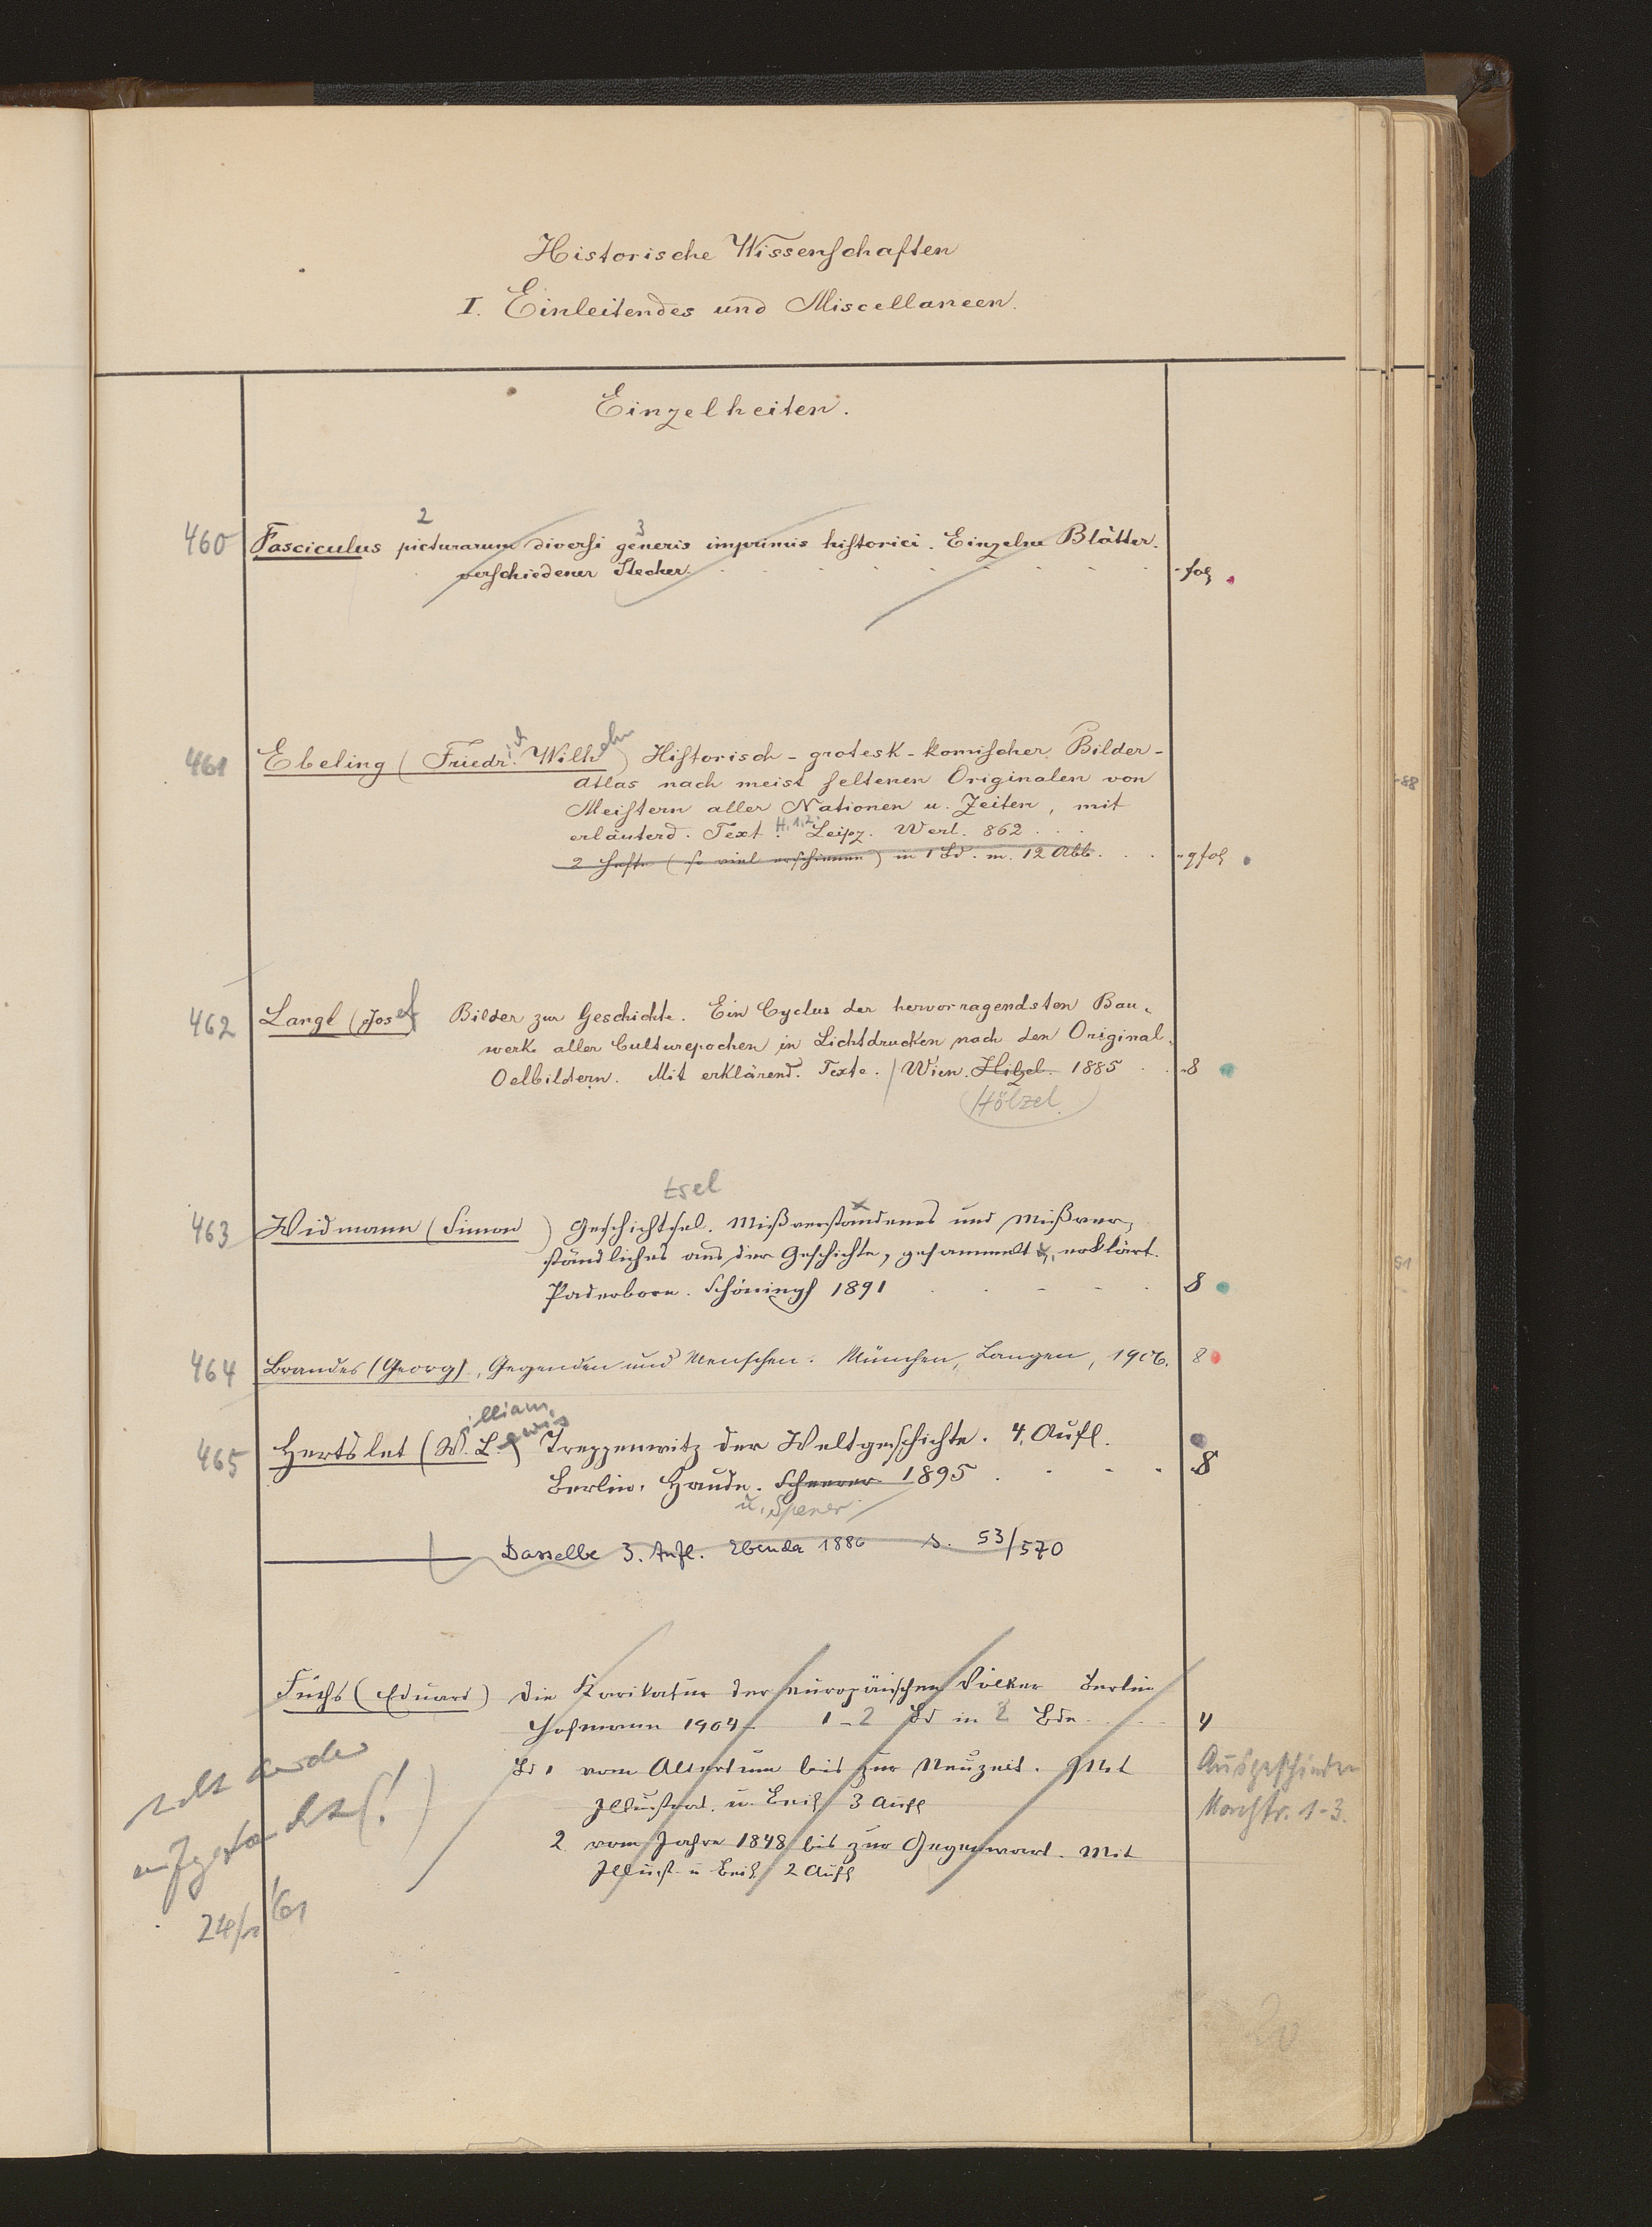 Historische Wissenschaften
I. Einleitendes und Miscellaneen.
Einzelheiten.
2 3
460 Fasciculus picturarum diversi generis imprimis historici. Einzelne Blätter
verschiedener Stecher. fol
461 Ebeling (Friedrich Wilhelm) Historisch-grotesk-komischer Bilder-
Atlas nach meist seltenen Originalen von
Meistern aller Nationen u. Zeiten, mit
erläuternd. Text. H. 1,2. Leipz. Werl. 862
2 Hefte (so viel erschienen) in 1 Bd. m. 12 Abb. gfol
462 Langl (Josef) Bilder zur Geschichte. Ein Cyclus der hervorragendsten Bau-
werke aller Culturepochen in Lichtdrucken nach den Original-
Oelbildern. Mit erklärend. Texte. / Wien. Hilzel. 1885 8
Hölzel
tsel
463 Widmann (Simon) Geschichtsel. Mißverstandenes und Mißver-
ständliches aus der Geschichte, gesammelt u. erklärt.
Paderborn. Schöningh 1891 8
464 Brandes (Georg), Gegenden und Menschen. München, Langen, 1906. 8
465 Hertslet (William Lewis) Treppenwitz der Weltgeschichte. 4. Aufl. 8
Berlin. Haude. Scherer 1895
u. Spener
Dasselbe 3. Aufl. Ebenda 1886 s. 53/570
Fuchs (Eduard) Die Karikatur der europäischen Völker Berlin
Hofmann 1904- 1-2 Bd in 2 Bdn 4
Bd 1 vom Altertum bis zur Neuzeit. Mit
Illustrat. u. Beil 3 Aufl
2 vom Jahre 1848 bis zur Gegenwart. Mit
Illust. u Beil. 2 Aufl
Ausgeschieden
Nachtr. 1-3.
aufgestellt (!)